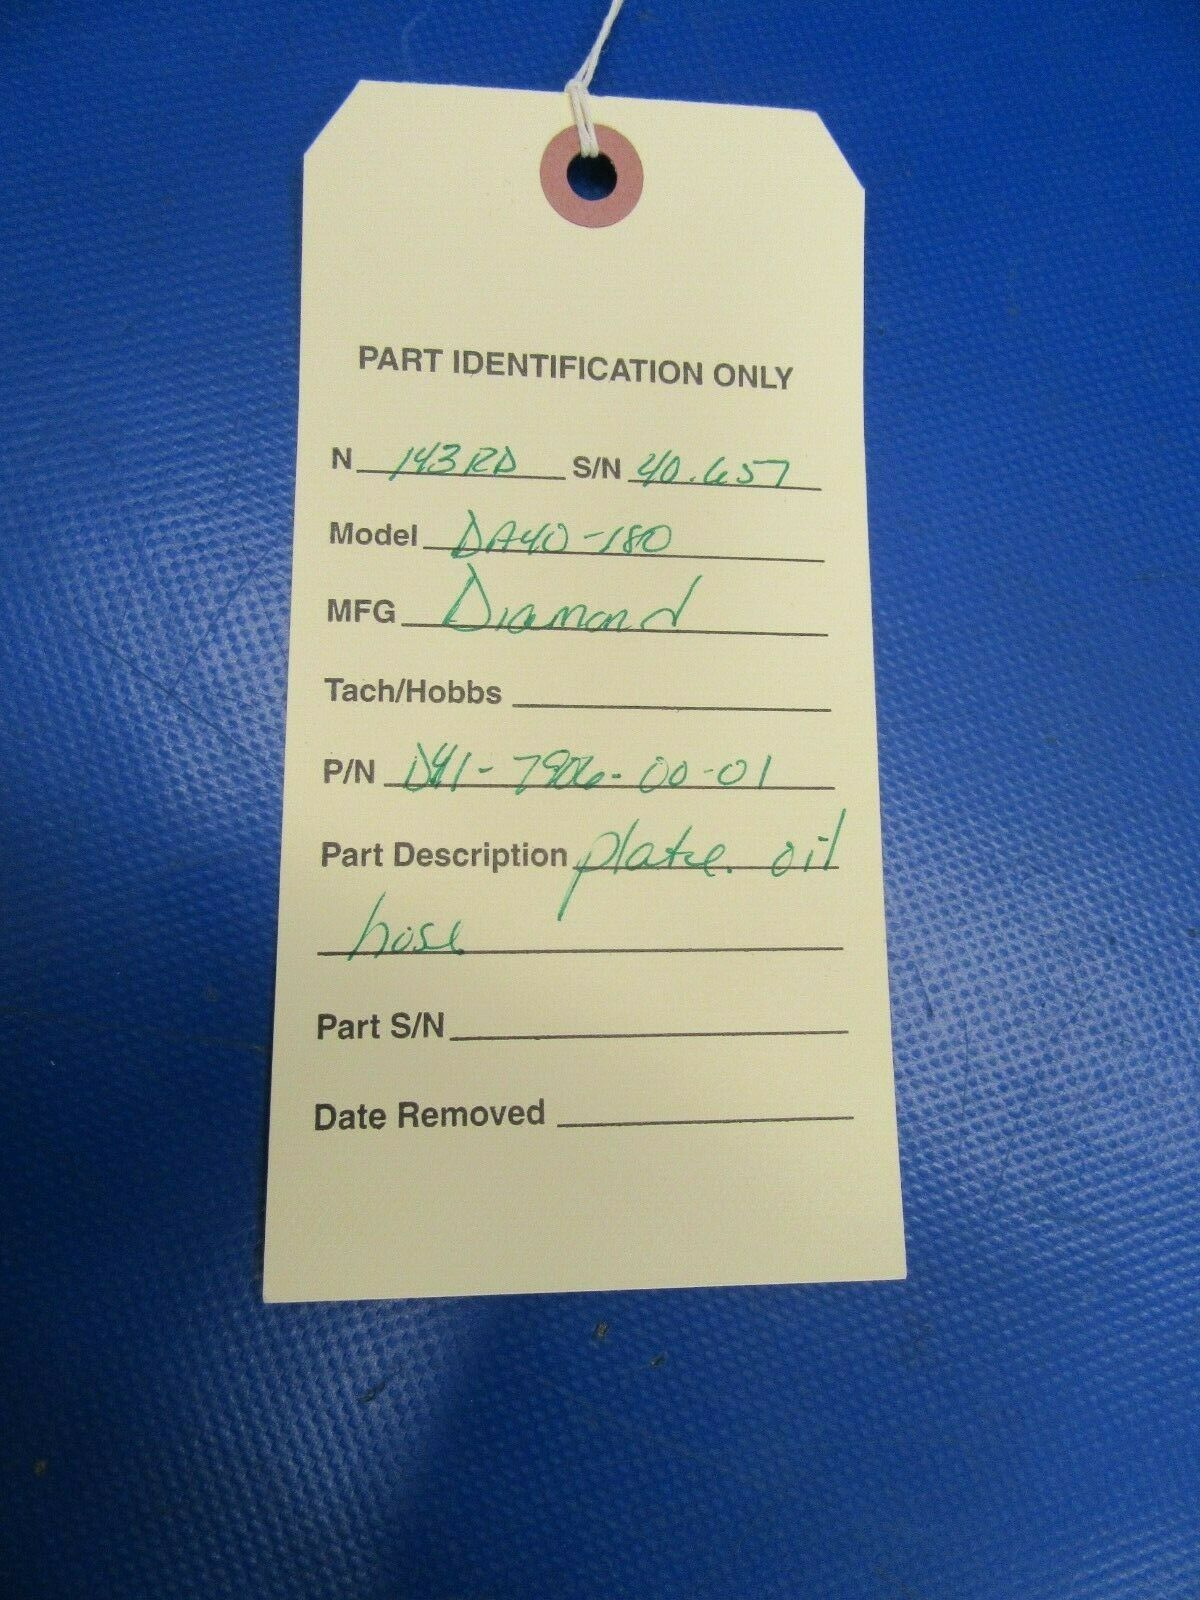 PART IDENTIFICATION ONLY
N 143RD S/N 40.657
Model DA40-180
MFG Diamond
Tach/Hobbs
P/N D41-7906-00-01
Part Description plate. oil
hose
Part S/N
Date Removed